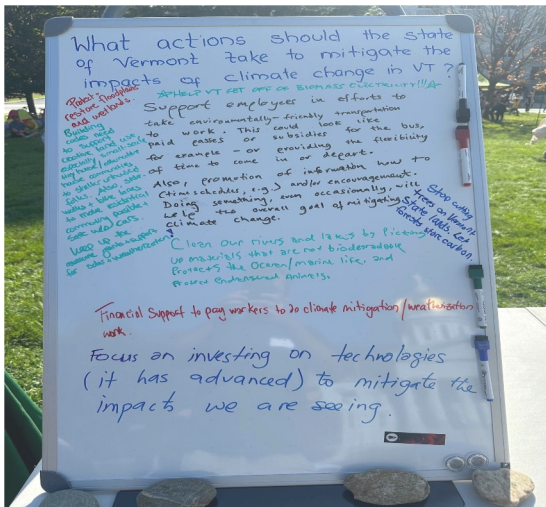 What actions should the state
of Vermont take to mitigate the
impacts of climate change in VT?
☆HELP VT GET OFF OF BIOMASS ELECTRICITY!!!☆
Protect +
restore floodplains
and wetlands.
Building
codes need
to support
creative land use
especially small-scale
home communities
Also, side-
walks + bike lanes
to make residential
communities possible +
safe w/o cars.
Keep up the
Support employees in efforts to
take environmentally-friendly transportation
to work. This could look like
paid passes or subsidies for the bus,
for example - or providing the flexibility
of time to come in or depart.
Also, promotion of information how to
(time schedules, e.g.) and/or encouragement.
Doing something, even occasionally, will
help the overall goal of mitigating
climate change.
Stop cutting
trees on Vermont
State lands. Let
forests store carbon.
Clean our rivers and lakes by Picking
up materials that are not biodegradable
Protects the Ocean/marine life, and
Protect Endangered Animals.
Financial Support to pay workers to do climate mitigation/weatherization
work.
Focus on investing on technologies
(it has advanced) to mitigate the
impacts we are seeing.